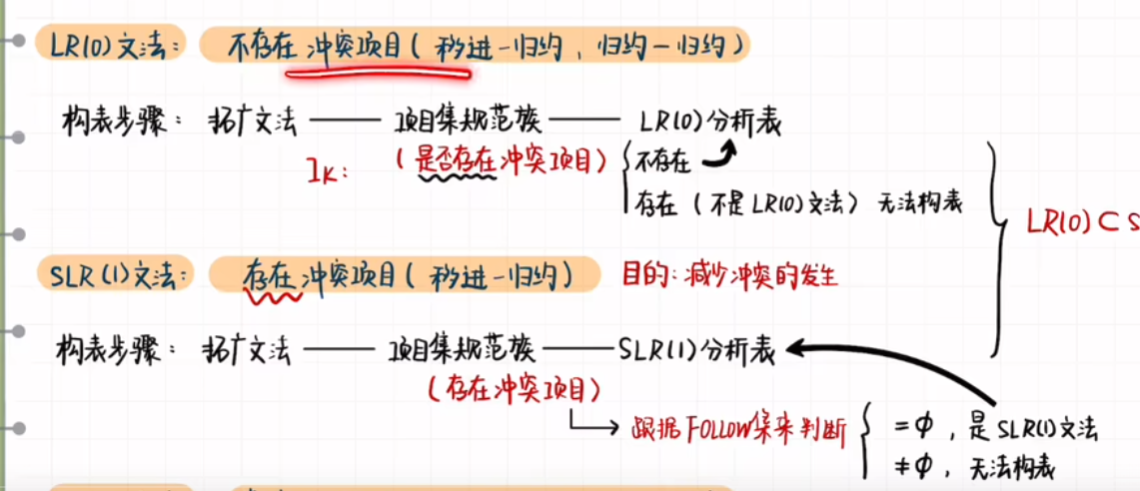 LR(0)文法: 不存在冲突项目(移进-归约, 归约-归约)
构表步骤: 拓广文法 —— 项目集规范族 —— LR(0)分析表
IK: (是否存在冲突项目) 不存在
存在(不是LR(0)文法) 无法构表
LR(0)⊂S
SLR(1)文法: 存在冲突项目(移进-归约) 目的:减少冲突的发生
构表步骤: 拓广文法 —— 项目集规范族 —— SLR(1)分析表
(存在冲突项目)
跟据FOLLOW集来判断 =Φ, 是SLR(1)文法
≠Φ, 无法构表